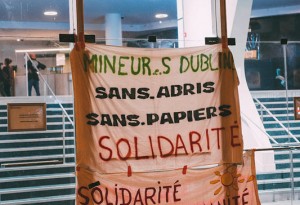 MINEUR..S DUBLIN
SANS.ABRIS
SANS.PAPIERS
SOLIDARITÉ
SOLIDARITÉ